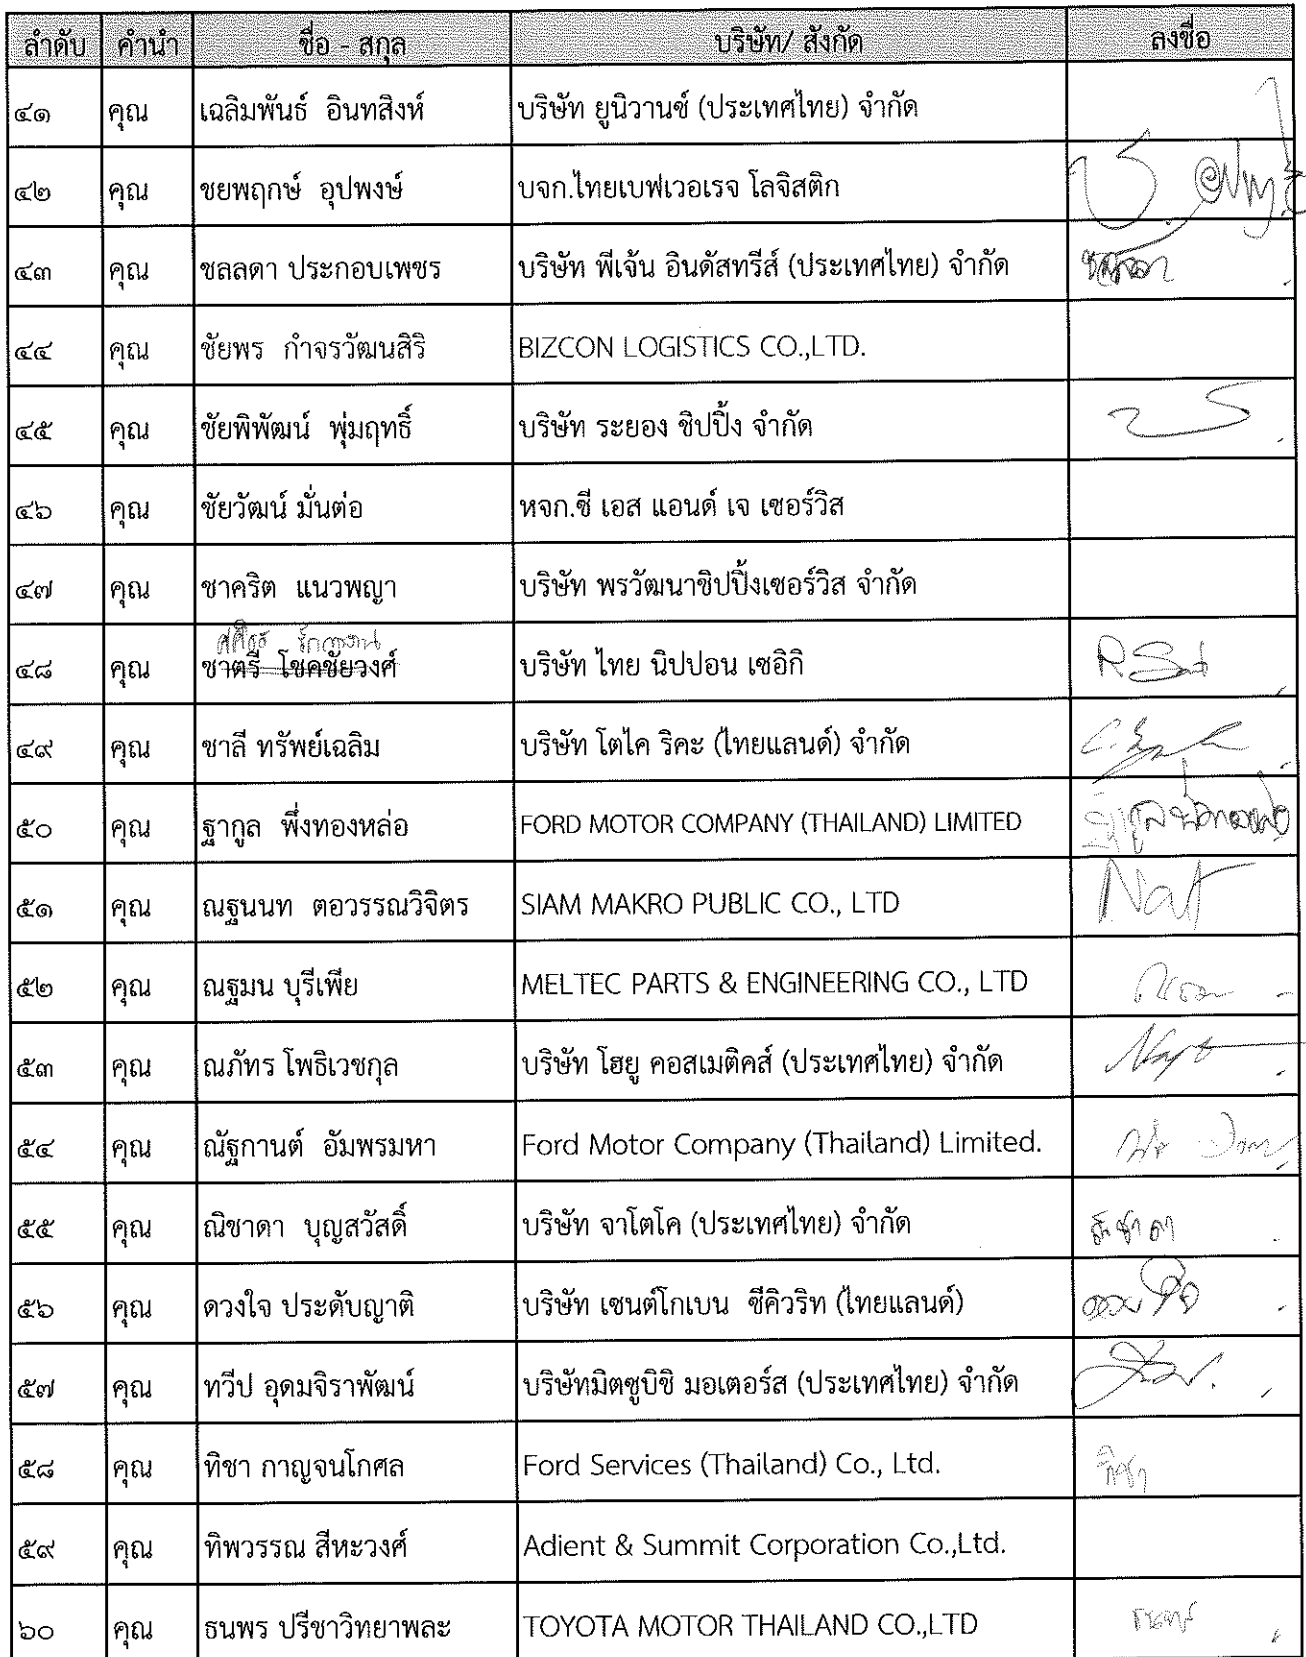 ลำดับ คำนำ ชื่อ - สกุล บริษัท/ สังกัด ลงชื่อ
๔๑ คุณ เฉลิมพันธ์ อินทสิงห์ บริษัท ยูนิวานซ์ (ประเทศไทย) จำกัด
๔๒ คุณ ชยพฤกษ์ อุปพงษ์ บจก.ไทยเบฟเวอเรจ โลจิสติก
๔๓ คุณ ชลลดา ประกอบเพชร บริษัท พีเจ้น อินดัสทรีส์ (ประเทศไทย) จำกัด ชลลดา
๔๔ คุณ ชัยพร กำจรวัฒนสิริ BIZCON LOGISTICS CO.,LTD.
๔๕ คุณ ชัยพิพัฒน์ พุ่มฤทธิ์ บริษัท ระยอง ชิปปิ้ง จำกัด
๔๖ คุณ ชัยวัฒน์ มั่นต่อ หจก.ซี เอส แอนด์ เจ เซอร์วิส
๔๗ คุณ ชาคริต แนวพญา บริษัท พรวัฒนาชิปปิ้งเซอร์วิส จำกัด
๔๘ คุณ ชาตรี โชคชัยวงศ์ บริษัท ไทย นิปปอน เซอิกิ
๔๙ คุณ ชาลี ทรัพย์เฉลิม บริษัท โตไค ริคะ (ไทยแลนด์) จำกัด
๕๐ คุณ ฐากูล พึ่งทองหล่อ FORD MOTOR COMPANY (THAILAND) LIMITED
๕๑ คุณ ณฐนนท ตอวรรณวิจิตร SIAM MAKRO PUBLIC CO., LTD Nat
๕๒ คุณ ณฐมน บุรีเพีย MELTEC PARTS & ENGINEERING CO., LTD
๕๓ คุณ ณภัทร โพธิเวชกุล บริษัท โฮยู คอสเมติคส์ (ประเทศไทย) จำกัด
๕๔ คุณ ณัฐกานต์ อัมพรมหา Ford Motor Company (Thailand) Limited.
๕๕ คุณ ณิชาดา บุญสวัสดิ์ บริษัท จาโตโค (ประเทศไทย) จำกัด ณิชาดา
๕๖ คุณ ดวงใจ ประดับญาติ บริษัท เซนต์โกเบน ซีคิวริท (ไทยแลนด์) ดวงใจ
๕๗ คุณ ทวีป อุดมจิราพัฒน์ บริษัทมิตซูบิชิ มอเตอร์ส (ประเทศไทย) จำกัด
๕๘ คุณ ทิชา กาญจนโกศล Ford Services (Thailand) Co., Ltd. ทิชา
๕๙ คุณ ทิพวรรณ สีหะวงศ์ Adient & Summit Corporation Co.,Ltd.
๖๐ คุณ ธนพร ปรีชาวิทยาพละ TOYOTA MOTOR THAILAND CO.,LTD ธนพร